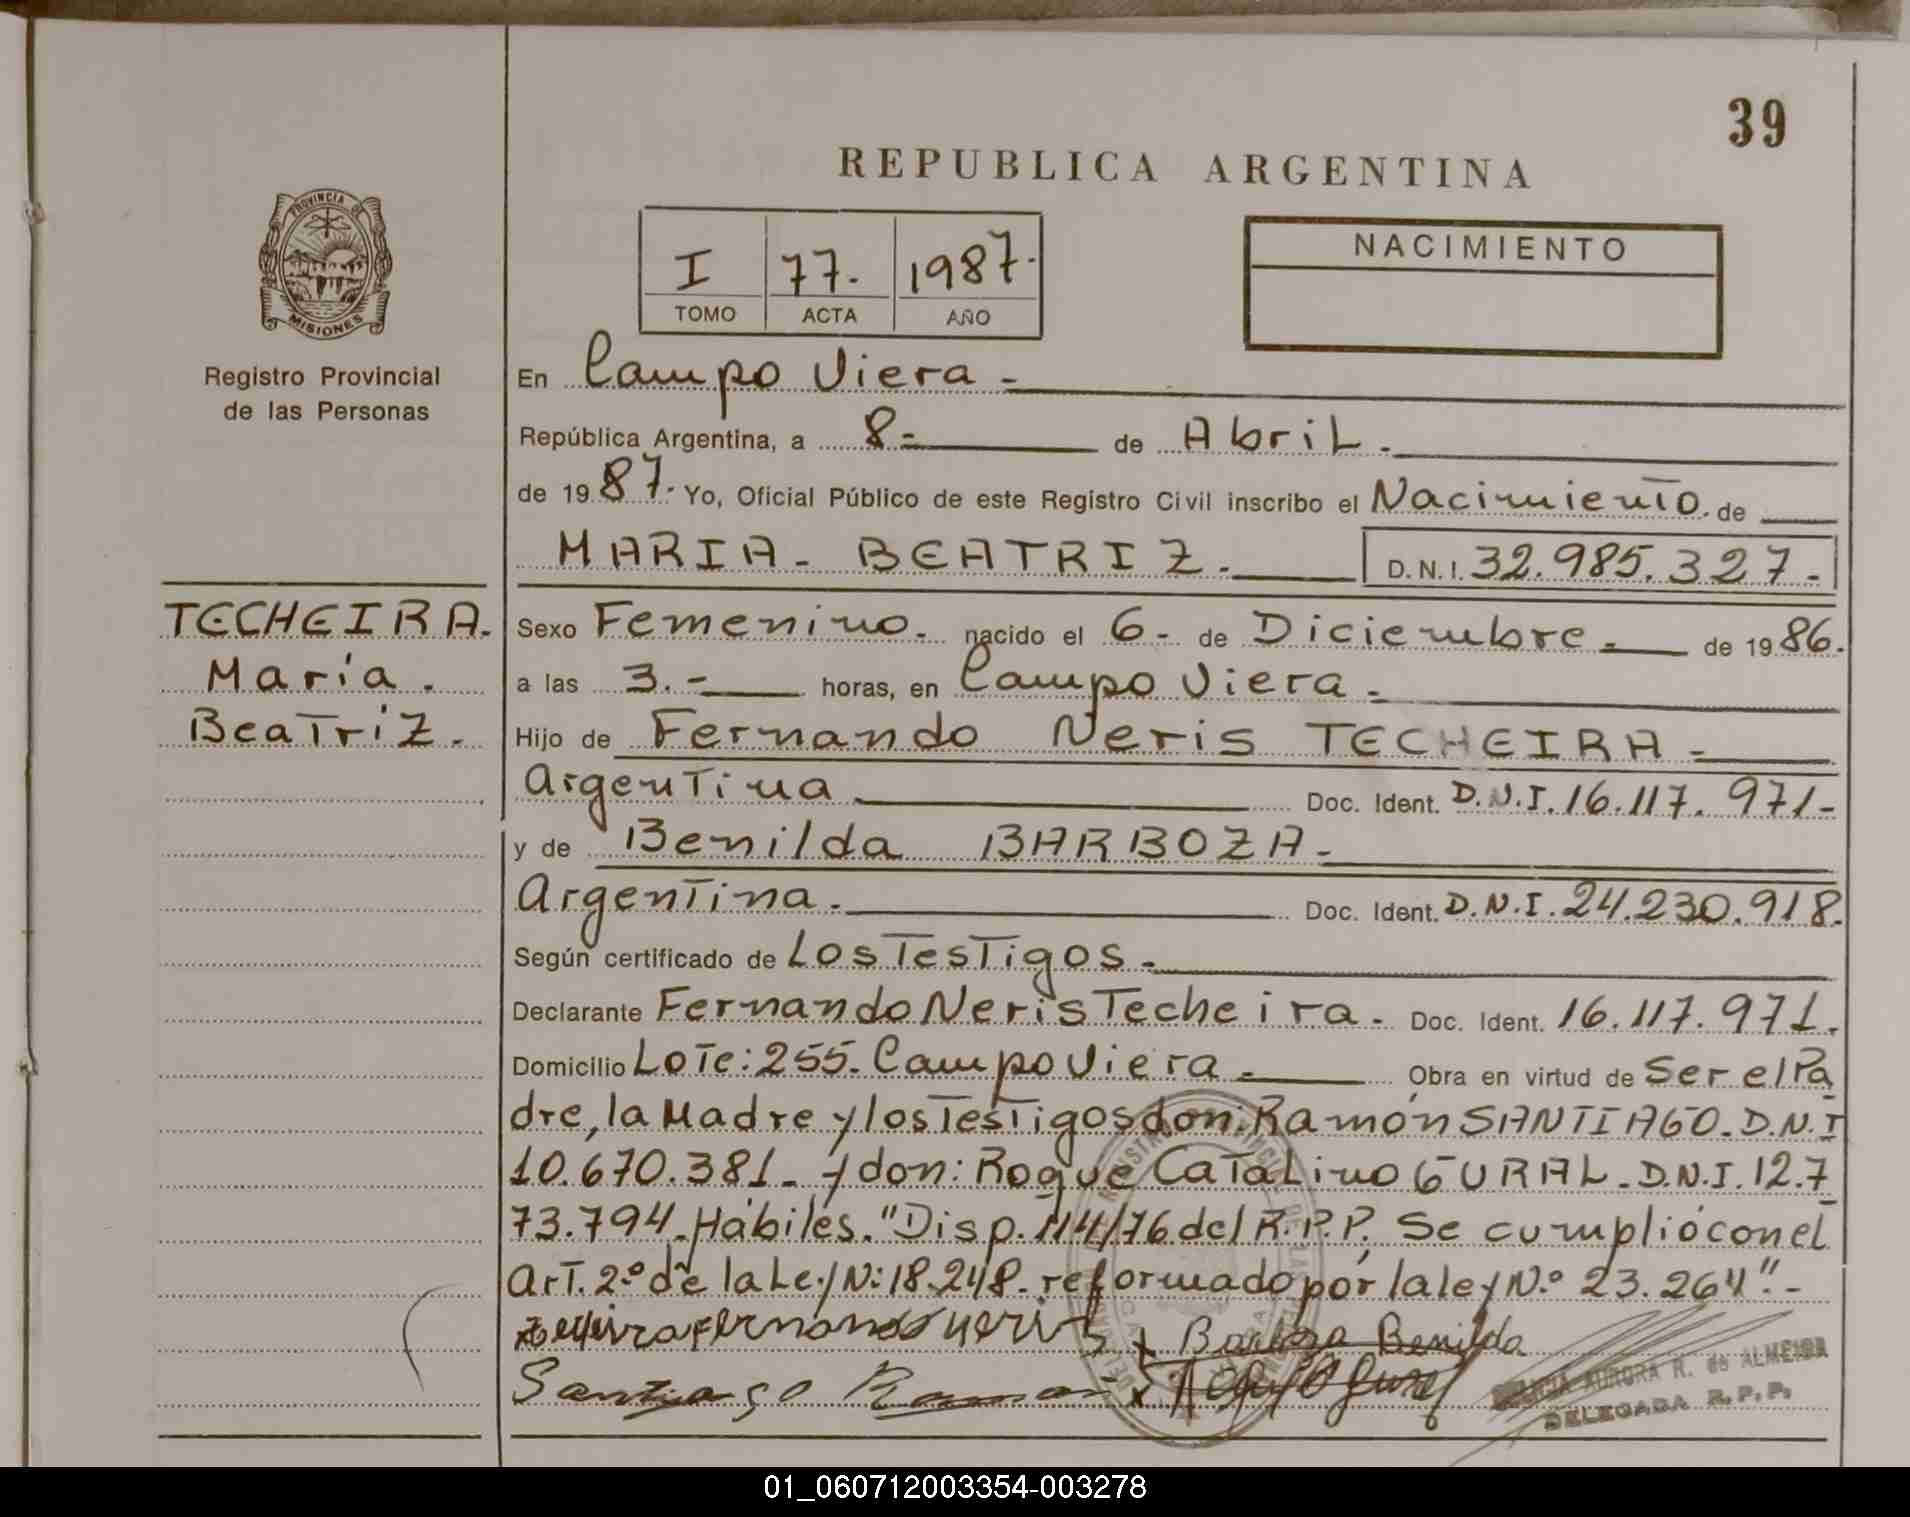 39
REPUBLICA ARGENTINA
PROVINCIA DE
MISIONES
Registro Provincial
de las Personas
I 77.- 1987.-
TOMO ACTA AÑO
NACIMIENTO
En Campo Viera -
República Argentina, a 8.- de Abril.-
de 1987.- Yo, Oficial Público de este Registro Civil inscribo el Nacimiento. de
MARIA - BEATRIZ.- D.N.I. 32.985.327.-
TECHEIRA.
María.
Beatriz.
Sexo Femenino. nacido el 6.- de Diciembre.- de 1986.
a las 3.- horas, en Campo Viera.-
Hijo de Fernando Neris TECHEIRA -
Argentina Doc. Ident. D.N.I. 16.117.971-
y de Benilda BARBOZA.-
Argentina.- Doc. Ident. D.N.I. 24.230.918.
Según certificado de Los Testigos.-
Declarante Fernando Neris Techeira. Doc. Ident. 16.117.971.
Domicilio Lote: 255. Campo Viera.- Obra en virtud de Ser el Pa
dre, la Madre y los Testigos don: Ramón SANTIAGO. D.N.I
10.670.381- y don: Roque Catalino GURAL. D.N.I. 12.7
73.794. Hábiles. "Disp. 114/76 del R.P.P. Se cumplió con el
Art. 2º de la Ley Nº 18.248. reformado por la ley Nº 23.264".-
Fernando Neris x Barboza Benilda
Santiago Ramon x
AURORA R. de ALMEIDA
DELEGADA R.P.P.
01_060712003354-003278